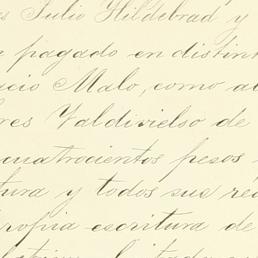 Julio Hildebrad y
pagado en distint
cio Malo, como a
res Valdivielso de
cuatrocientos pesos
tura y todos sus re
propia escritura de